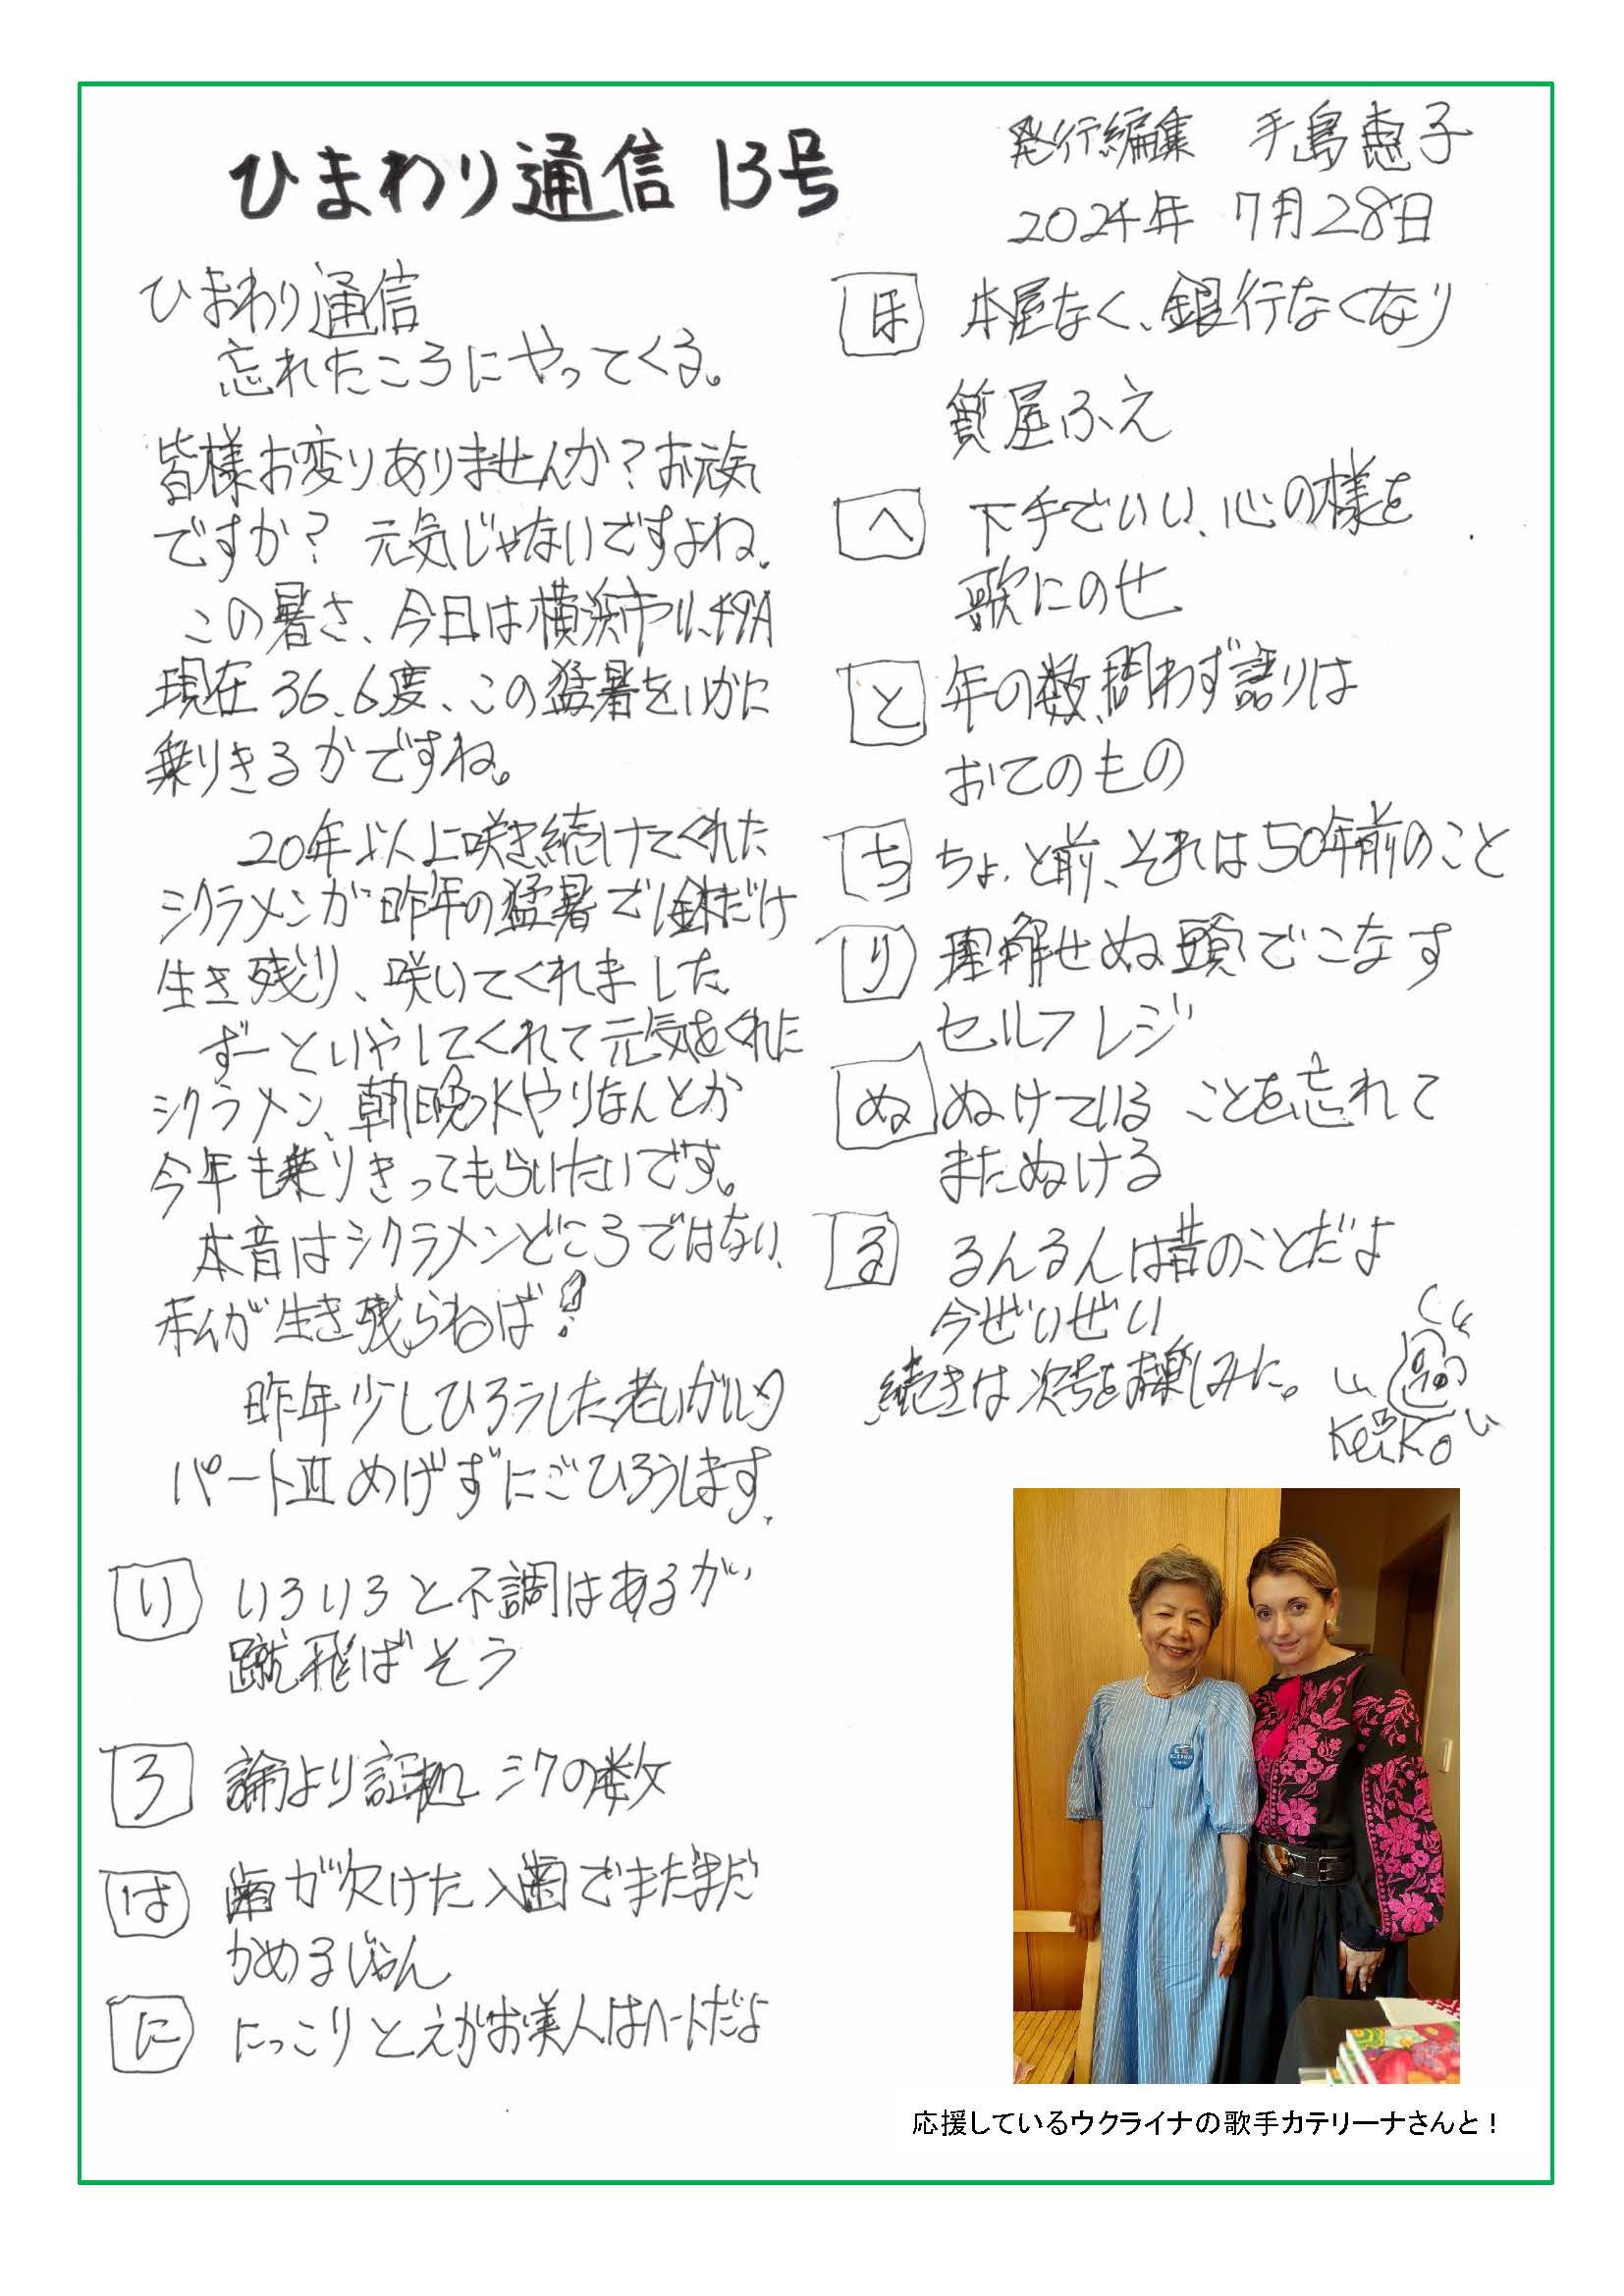 ひまわり通信 13号
発行編集 手島恵子
2024年 7月28日
ひまわり通信
忘れたころにやってくる。
皆様お変りありませんか?お元気
ですか? 元気じゃないですよね。
この暑さ、今日は横浜市
現在36.6度、この猛暑をいかに
乗りきるかですね。
20年以上咲き続けてくれた
シクラメンが昨年の猛暑で1鉢だけ
生き残り、咲いてくれました
ずーといやしてくれて元気をくれた
シクラメン、朝晩水やりなんとか
今年も乗りきってもらいたいです。
本音はシクラメンどころではない、
私が生き残らねば!
昨年少しひろうした老いがるた
パートⅡめげずにごひろうします。
い いろいろと不調はあるが
蹴飛ばそう
ろ 論より証拠 シワの数
は 歯が欠けた入歯でまだまだ
かめるじゃん
に にっこりとえがお美人はハートだよ
ほ 本屋なく、銀行なくなり
質屋ふえ
へ 下手でいい、心の様を
歌にのせ
と 年の数、問わず語りは
おてのもの
ち ちょっと前、それは50年前のこと
り 理解せぬ頭でこなす
セルフレジ
ぬ ぬけている ことを忘れて
またぬける
る るんるんは昔のことだよ
今ぜいぜい
続きは次号をお楽しみに。
KeiKo
応援しているウクライナの歌手カテリーナさんと!